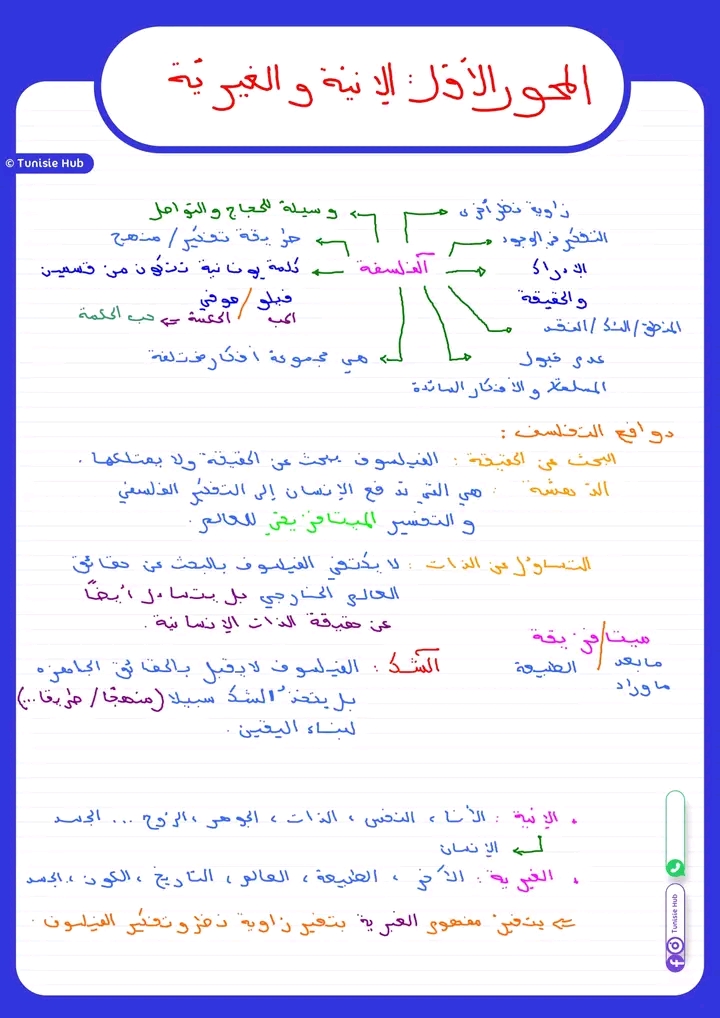 المحور الأوّل: الإنية و الغيريّة
© Tunisie Hub
زاوية نظر أخرى
وسيلة للحجاج والتواصل
التفكير في الوجود
طريقة تفكير / منهج
الفلسفة
الإدراك
والحقيقة
كلمة يونانية تتكون من قسمين
فيلو / صوفي
الحب الحكمة => حب الحكمة
المنطق / الشك / النقد
عدم قبول
المسلمات و الأفكار السائدة
هي مجموعة أفكار مختلفة
دوافع التفلسف :
البحث عن الحقيقة : الفيلسوف يبحث عن الحقيقة ولا يمتلكها .
الدهشة : هي التي تدفع الإنسان إلى التفكير الفلسفي
و التفسير الميتافيزيقي للعالم .
التساؤل عن الذات : لا يكتفي الفيلسوف بالبحث عن حقائق
العالم الخارجي بل يتساءل أيضًا
عن حقيقة الذات الإنسانية .
ميتا / فيزيقة
ما بعد الطبيعة
ماوراء
الشك : الفيلسوف لا يقبل بالحقائق الجاهزة
بل يتخذ الشك سبيلا (منهجًا / طريقا ...)
لبناء اليقين .
• الإنية : الأنا ، النفس ، الذات ، الجوهر ، الروح ... الجسد
الإنسان
• الغيرية : الآخر ، الطبيعة ، العالم ، التاريخ ، الكون ، الجسد
=> يتغير مفهوم الغيرية بتغير زاوية نظر و تفكير الفيلسوف .
Tunisie Hub